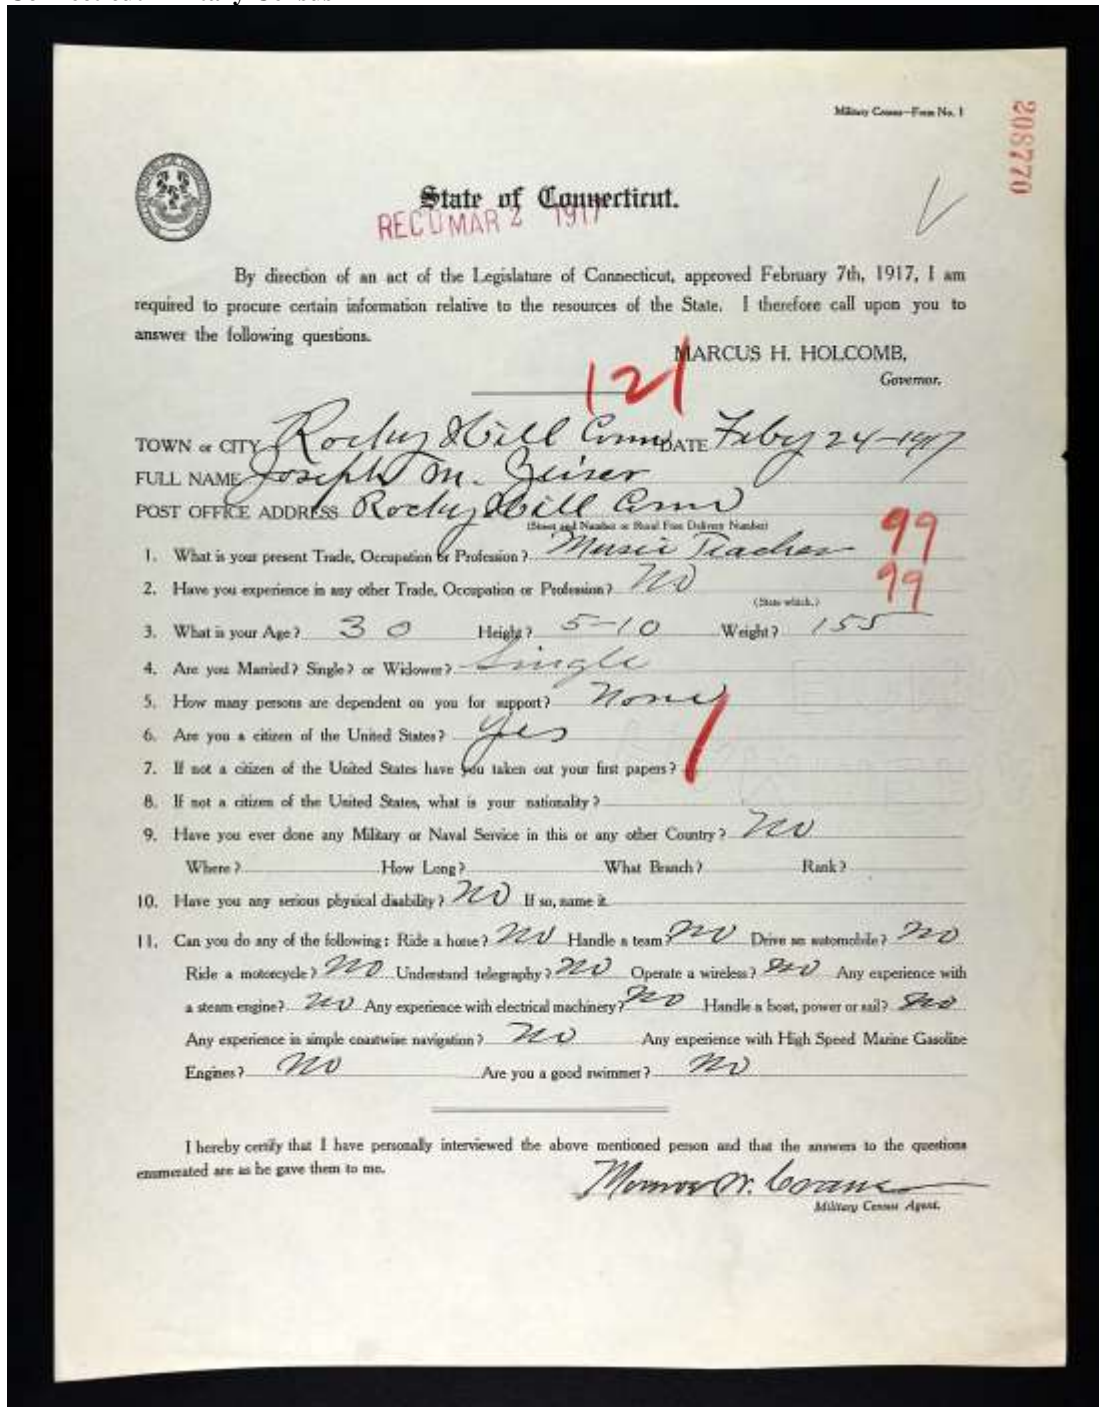 Military Census—Form No. 1
208770
State of Connecticut.
REC'D MAR 2 1917
By direction of an act of the Legislature of Connecticut, approved February 7th, 1917, I am
required to procure certain information relative to the resources of the State. I therefore call upon you to
answer the following questions.
MARCUS H. HOLCOMB,
Governor.
121
TOWN or CITY Rocky Hill Conn DATE Feby 24-1917
FULL NAME Joseph M. Zeiser
POST OFFICE ADDRESS Rocky Hill Conn
(Street and Number or Rural Free Delivery Number)
1. What is your present Trade, Occupation or Profession? Music Teacher 99
2. Have you experience in any other Trade, Occupation or Profession? No 99
(State which.)
3. What is your Age? 30 Height? 5-10 Weight? 155
4. Are you Married? Single? or Widower? Single
5. How many persons are dependent on you for support? None
6. Are you a citizen of the United States? Yes
7. If not a citizen of the United States have you taken out your first papers?
8. If not a citizen of the United States, what is your nationality?
9. Have you ever done any Military or Naval Service in this or any other Country? No
Where? How Long? What Branch? Rank?
10. Have you any serious physical disability? No If so, name it.
11. Can you do any of the following: Ride a horse? No Handle a team? No Drive an automobile? No
Ride a motorcycle? No Understand telegraphy? No Operate a wireless? No Any experience with
a steam engine? No Any experience with electrical machinery? No Handle a boat, power or sail? No
Any experience in simple coastwise navigation? No Any experience with High Speed Marine Gasoline
Engines? No Are you a good swimmer? No
I hereby certify that I have personally interviewed the above mentioned person and that the answers to the questions
enumerated are as he gave them to me.
Monroe W. Evans
Military Census Agent.